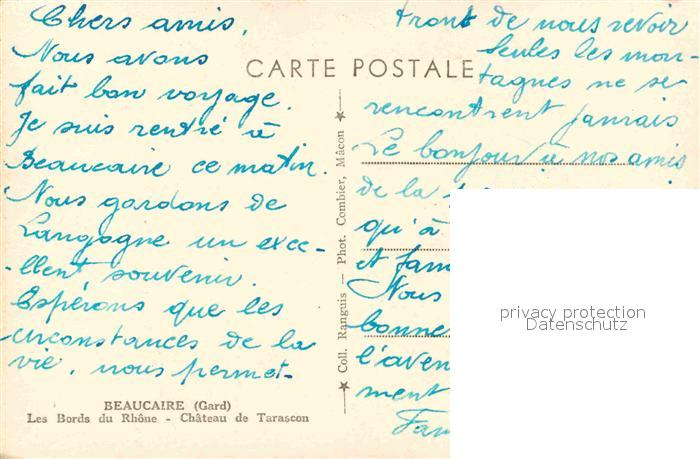 Chers amis,
Nous avons
fait bon voyage.
Je suis rentré à
Beaucaire ce matin.
Nous gardons de
Langogne un exce-
-llent souvenir.
Espérons que les
circonstances de la
vie, nous permet-
CARTE POSTALE
tront de nous revoir
Seules les mon-
tagnes ne se
rencontrent jamais
Le bonjour à nos amis
de la
qu'à
et fam
Nous
bonne
l'aven
ment
Fam
Coll. Ranguis — Phot. Combier, Mâcon
BEAUCAIRE (Gard)
Les Bords du Rhône - Château de Tarascon
privacy protection
Datenschutz